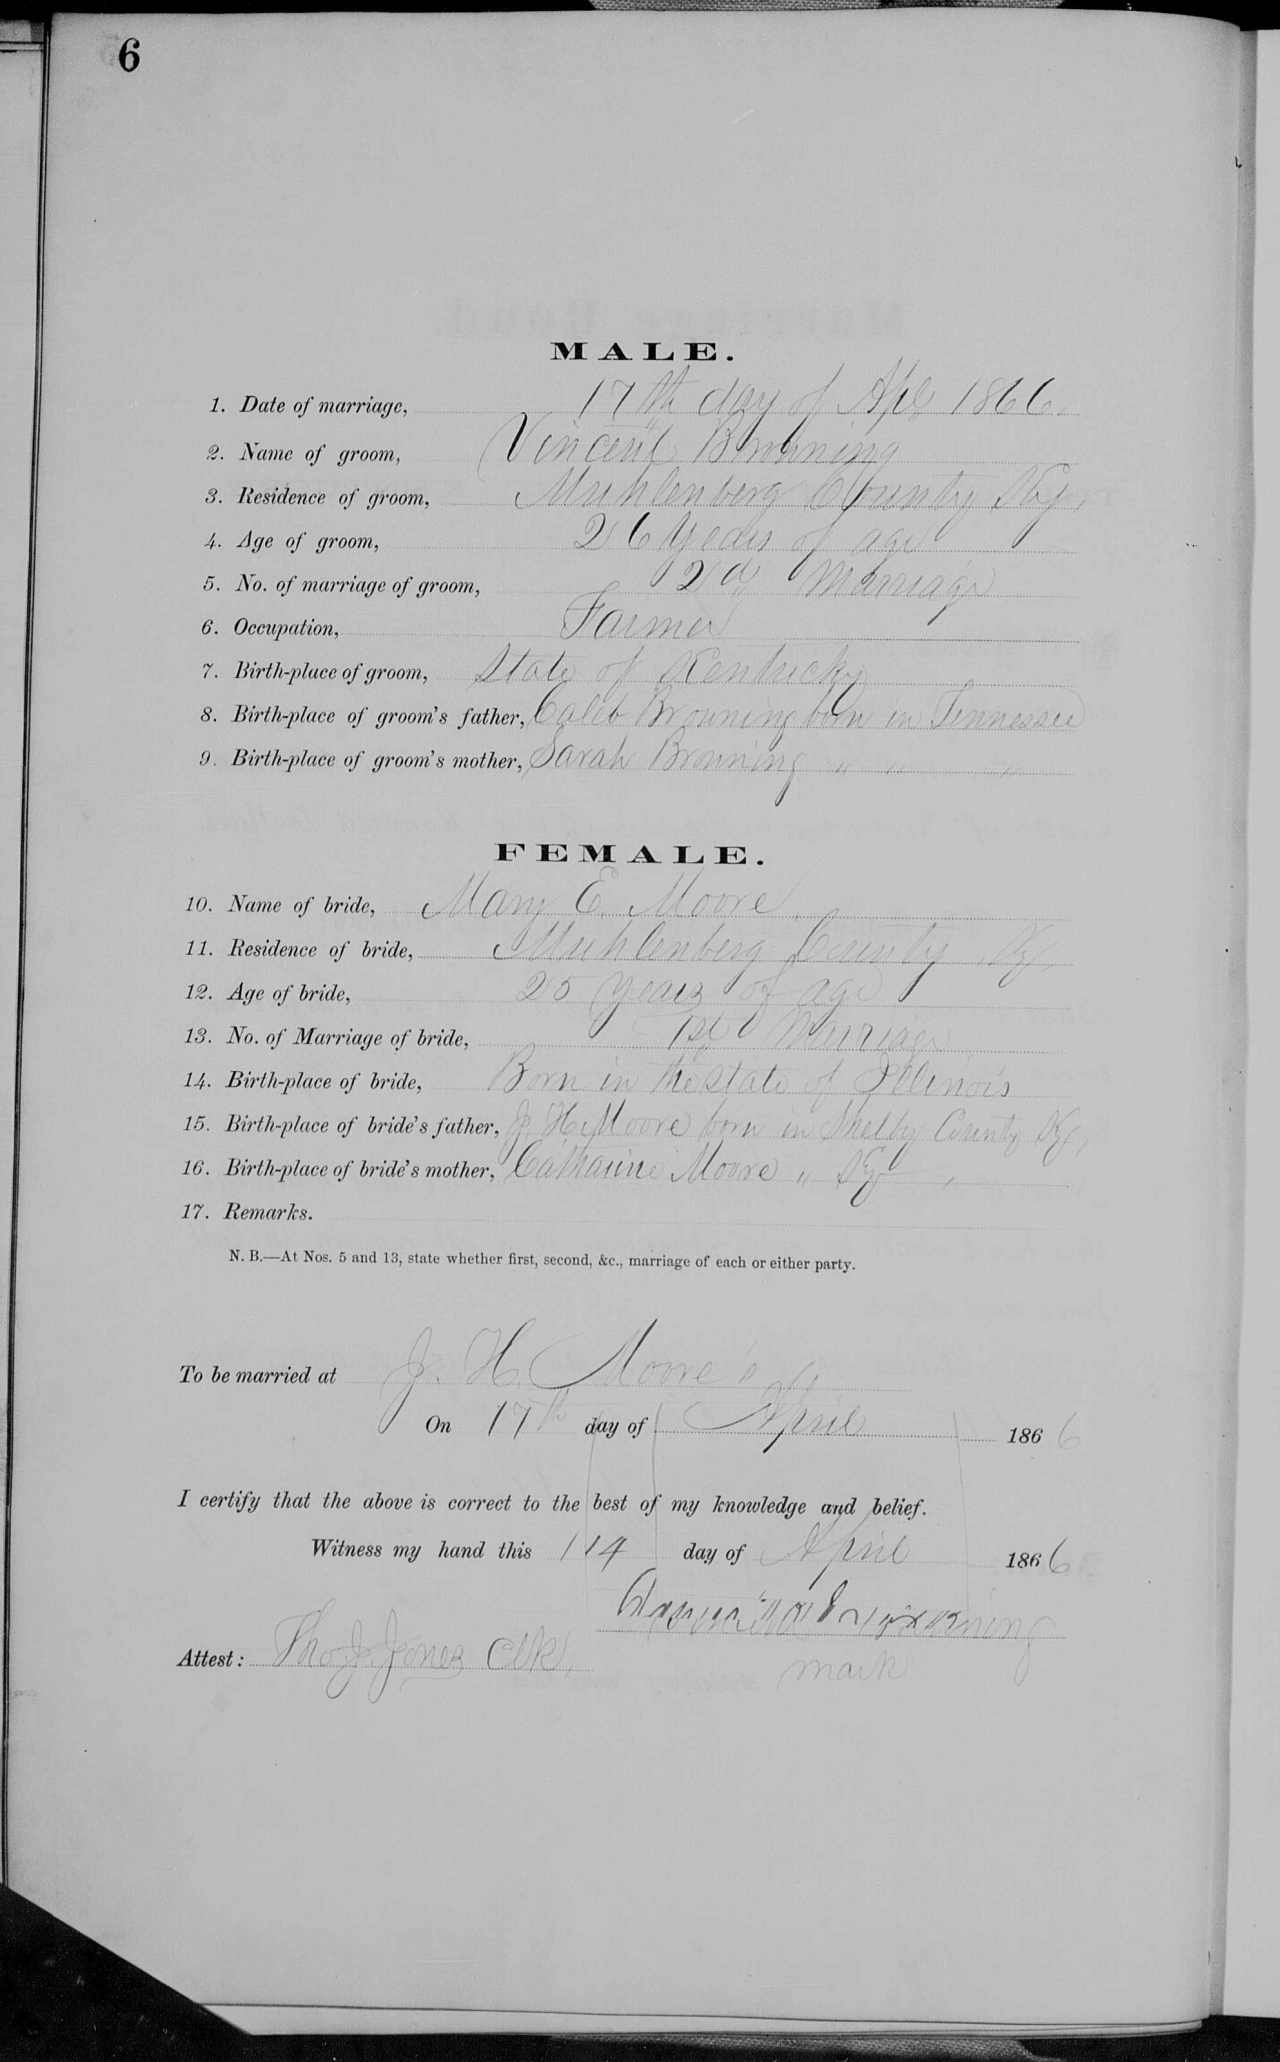 6
MALE.
1. Date of marriage, 17th day of Apl 1866.
2. Name of groom, Vincent Browning
3. Residence of groom, Muhlenberg County Ky,
4. Age of groom, 26 Years of age
5. No. of marriage of groom, 2d Marriage
6. Occupation, Farmer
7. Birth-place of groom, State of Kentucky
8. Birth-place of groom's father, Caleb Browning born in Tennessee
9. Birth-place of groom's mother, Sarah Browning " " "
FEMALE.
10. Name of bride, Mary E. Moore
11. Residence of bride, Muhlenberg County Ky,
12. Age of bride, 25 years of age
13. No. of Marriage of bride, 1st Marriage
14. Birth-place of bride, Born in the State of Illinois
15. Birth-place of bride's father, J. H. Moore born in Shelby County Ky,
16. Birth-place of bride's mother, Catharine Moore " Ky "
17. Remarks.
N. B.—At Nos. 5 and 13, state whether first, second, &c., marriage of each or either party.
To be married at J. H. Moore's
On 17th day of April 1866
I certify that the above is correct to the best of my knowledge and belief.
Witness my hand this 14 day of April 1866
Browning
Attest: Tho. J. Jones Clk,
mark